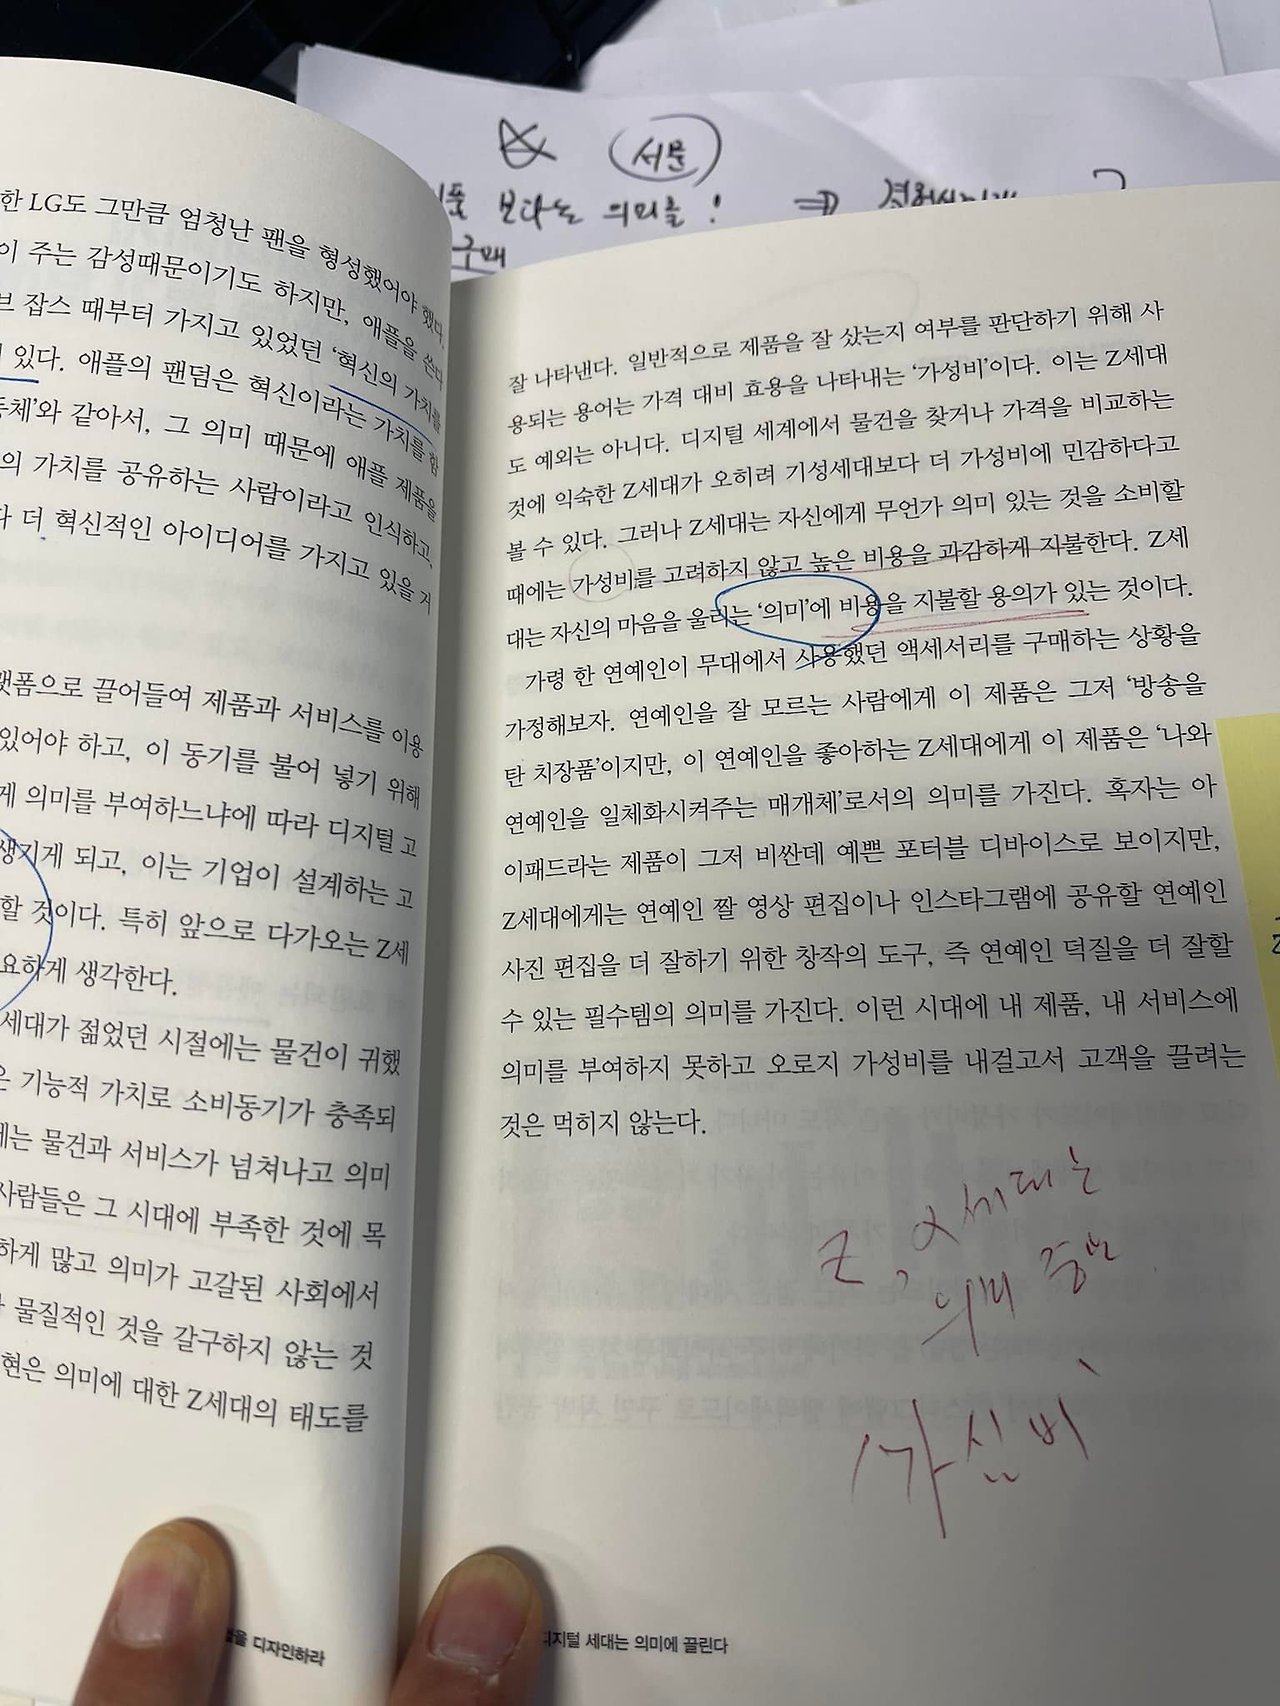 서문
보다는 의미를! ⇒
구매
한 LG도 그만큼 엄청난 팬을 형성했어야 했다.
이 주는 감성때문이기도 하지만, 애플을 쓴다
브 잡스 때부터 가지고 있었던 ‘혁신의 가치를
있다. 애플의 팬덤은 혁신이라는 가치를 함
동체’와 같아서, 그 의미 때문에 애플 제품을
의 가치를 공유하는 사람이라고 인식하고,
다 더 혁신적인 아이디어를 가지고 있을 거
랫폼으로 끌어들여 제품과 서비스를 이용
있어야 하고, 이 동기를 불어 넣기 위해
게 의미를 부여하느냐에 따라 디지털 고
생기게 되고, 이는 기업이 설계하는 고
할 것이다. 특히 앞으로 다가오는 Z세
요하게 생각한다.
세대가 젊었던 시절에는 물건이 귀했
은 기능적 가치로 소비동기가 충족되
에는 물건과 서비스가 넘쳐나고 의미
사람들은 그 시대에 부족한 것에 목
하게 많고 의미가 고갈된 사회에서
물질적인 것을 갈구하지 않는 것
현은 의미에 대한 Z세대의 태도를
디자인하라
잘 나타낸다. 일반적으로 제품을 잘 샀는지 여부를 판단하기 위해 사
용되는 용어는 가격 대비 효용을 나타내는 ‘가성비’이다. 이는 Z세대
도 예외는 아니다. 디지털 세계에서 물건을 찾거나 가격을 비교하는
것에 익숙한 Z세대가 오히려 기성세대보다 더 가성비에 민감하다고
볼 수 있다. 그러나 Z세대는 자신에게 무언가 의미 있는 것을 소비할
때에는 가성비를 고려하지 않고 높은 비용을 과감하게 지불한다. Z세
대는 자신의 마음을 울리는 ‘의미’에 비용을 지불할 용의가 있는 것이다.
가령 한 연예인이 무대에서 사용했던 액세서리를 구매하는 상황을
가정해보자. 연예인을 잘 모르는 사람에게 이 제품은 그저 ‘방송을
탄 치장품’이지만, 이 연예인을 좋아하는 Z세대에게 이 제품은 ‘나와
연예인을 일체화시켜주는 매개체’로서의 의미를 가진다. 혹자는 아
이패드라는 제품이 그저 비싼데 예쁜 포터블 디바이스로 보이지만,
Z세대에게는 연예인 짤 영상 편집이나 인스타그램에 공유할 연예인
사진 편집을 더 잘하기 위한 창작의 도구, 즉 연예인 덕질을 더 잘할
수 있는 필수템의 의미를 가진다. 이런 시대에 내 제품, 내 서비스에
의미를 부여하지 못하고 오로지 가성비를 내걸고서 고객을 끌려는
것은 먹히지 않는다.
Z, α세대는
의미 중시
가심비
디지털 세대는 의미에 끌린다